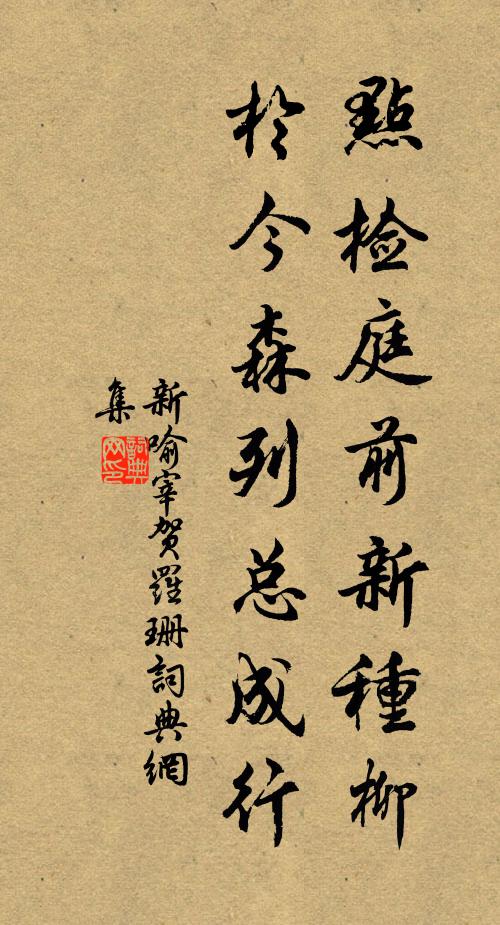 點檢庭前新種柳
於今森列总成行
新喻宰贺羅珊詞典網
集
詞典
网印